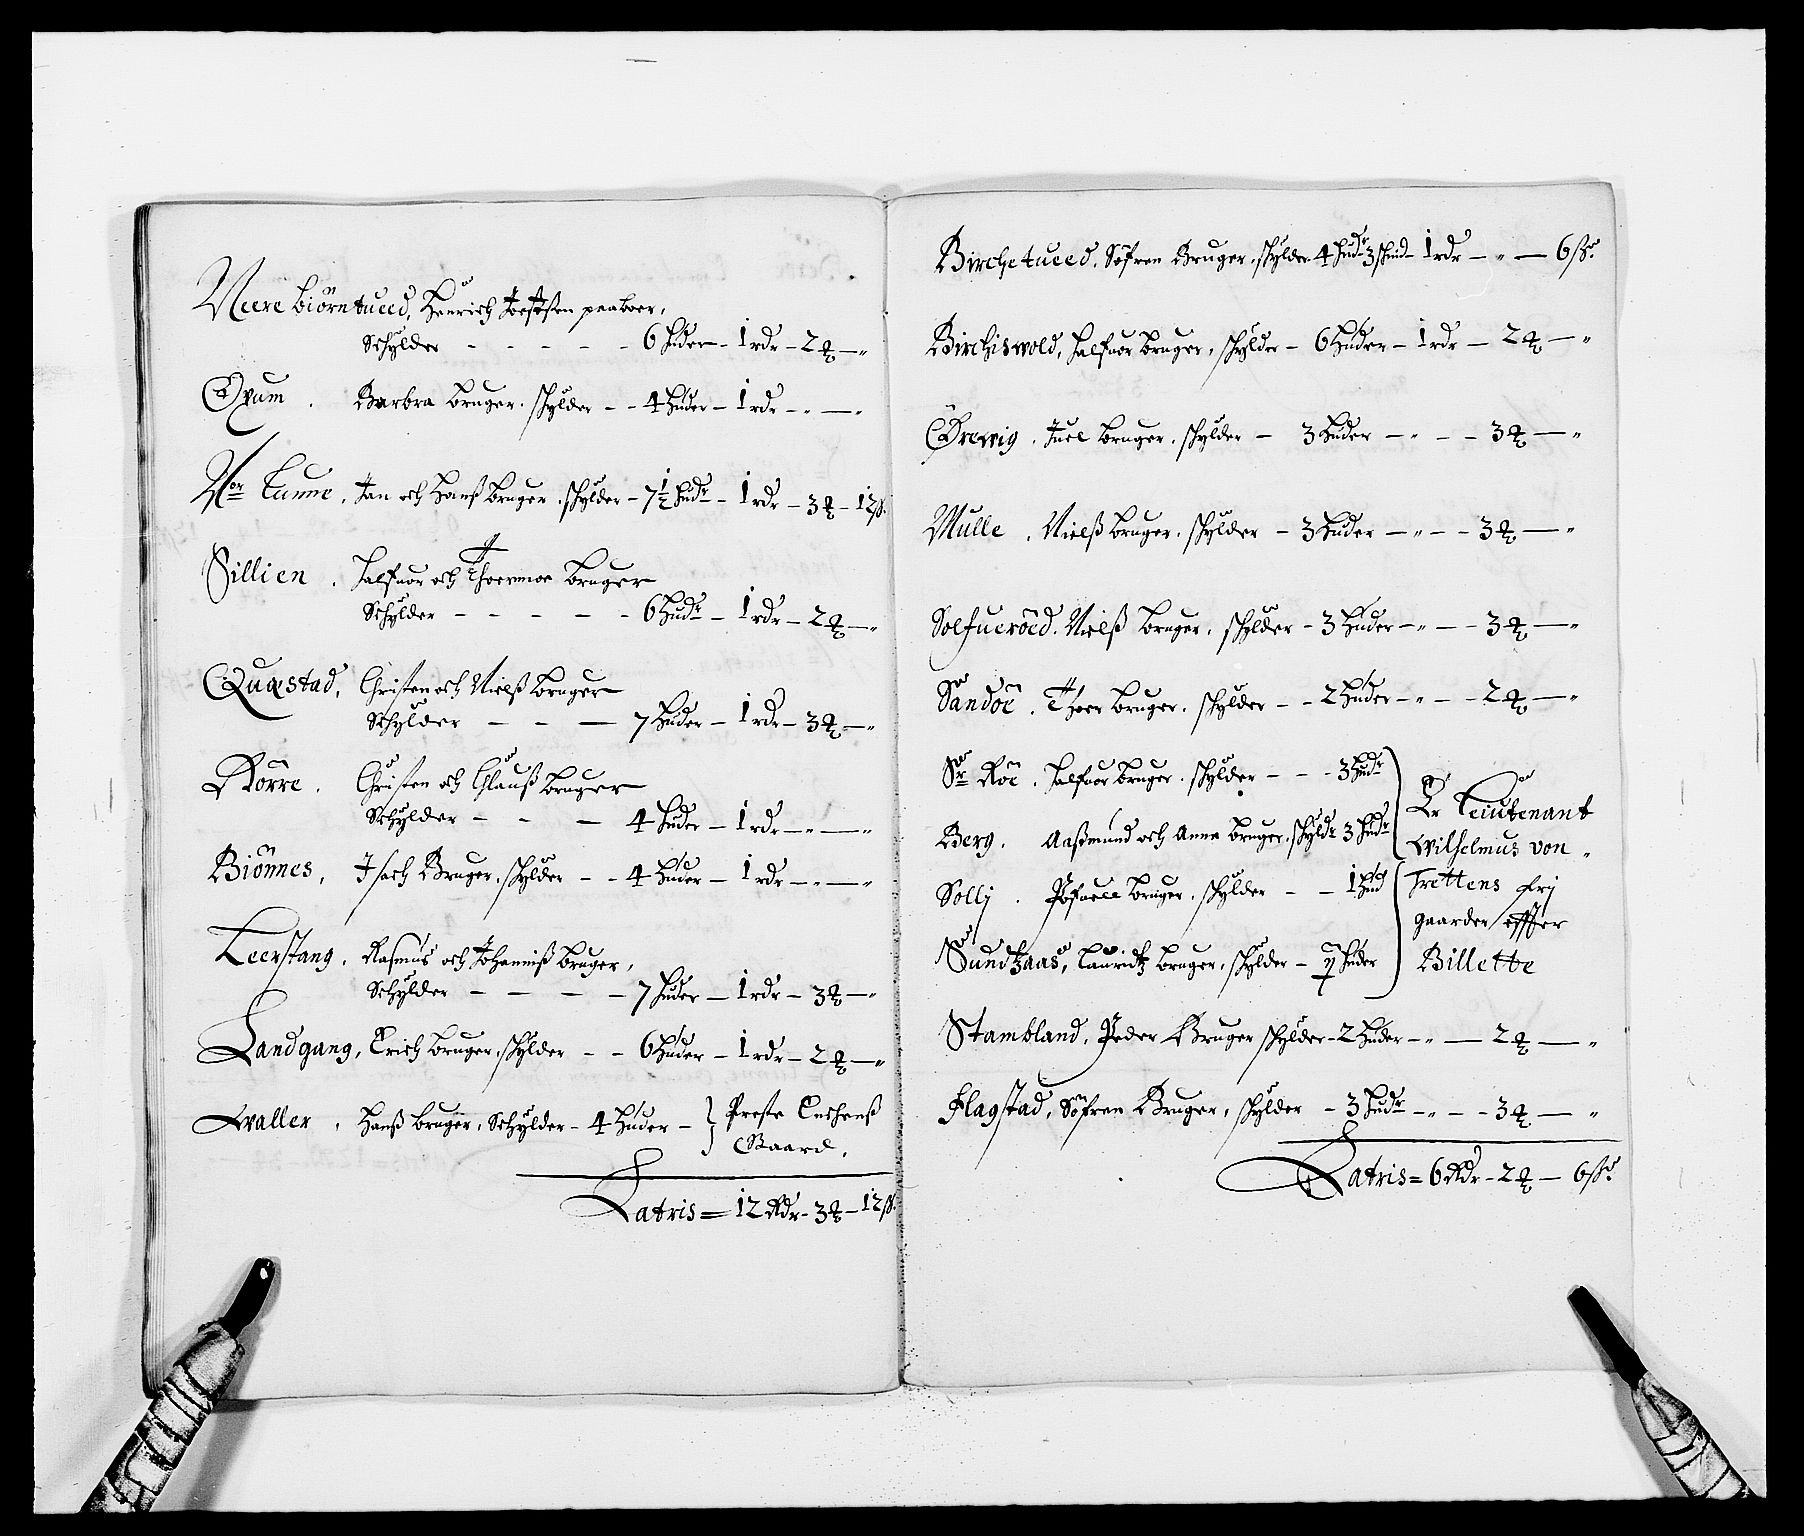 Neere biörntueed, Henrich Joestsen paaboer,
Schylder - - - - - 6 huder - 1 rdr - 2 ₰ - "
Oxum . Barbra bruger. schylder - - 4 huder - 1 rdr - " - "
Nor Lunne, Jan och Hanß bruger. schylder - 7½ hudr - 1 rdr - 3 ₰ - 12 ß.
Sillien . Halfuor och Thoermoe bruger
Schylder - - - - - 6 hudr - 1 rdr - 2 ₰ - "
Quæstad, Christen och Nielß bruger
Schylder - - - 7 huder - 1 rdr - 3 ₰ - "
Rörre . Christen och Clauß bruger
Schylder - - - 4 huder - 1 rdr - " - "
Biönnes, Isach Bruger. schylder - - 4 huder - 1 rdr - " - "
Leerstang, Rasmus och Johanniß bruger,
Schylder - - - - - 7 huder - 1 rdr - 3 ₰ - "
Landgang, Erich bruger, schylder - - 6 huder - 1 rdr - 2 ₰ - "
Waller , Hanß bruger, Schylder - 4 huder - } Preste Enchenß
Gaard,
Latris = 12 Rdr - 3 ₰ - 12 ß.
Birchetueed, Söfren Bruger, schylder 4 hudr 3 skind - 1 rdr - " - 6 ß.
Birchiswold, Halfuor bruger, schylder - 6 huder - 1 rdr - 2 ₰ - "
Örewig , Juel bruger, schylder - 3 huder - " - - 3 ₰ - "
Mulle , Nielß bruger, schylder - 3 huder - " - - 3 ₰ - "
Solfueröed, Nielß bruger, schylder - 3 huder - " - - 3 ₰ - "
Sandöe . Thoer bruger, schylder - - 2 huder - " - - 2 ₰ - "
Sr Röe . Halfuor bruger, schylder - - - 3 hudr
Berg, Aaßmund och Anne bruger, schyldr 3 hudr
Sollj . bruger, schylder - - 1 hud
Sundtzaas, Lauridtz bruger, schylder - huder
Hr Leiutenant
Wilhelmus von "
Trettens frj
gaarder effter
Billette
Stambland, Peder Bruger schylder - 2 huder - " - 2 ₰ - "
Flagstad, Söfren Bruger, schylder - 3 hudr - " - - 3 ₰ - "
Latris = 6 Rdr - 2 ₰ - 6 ß.